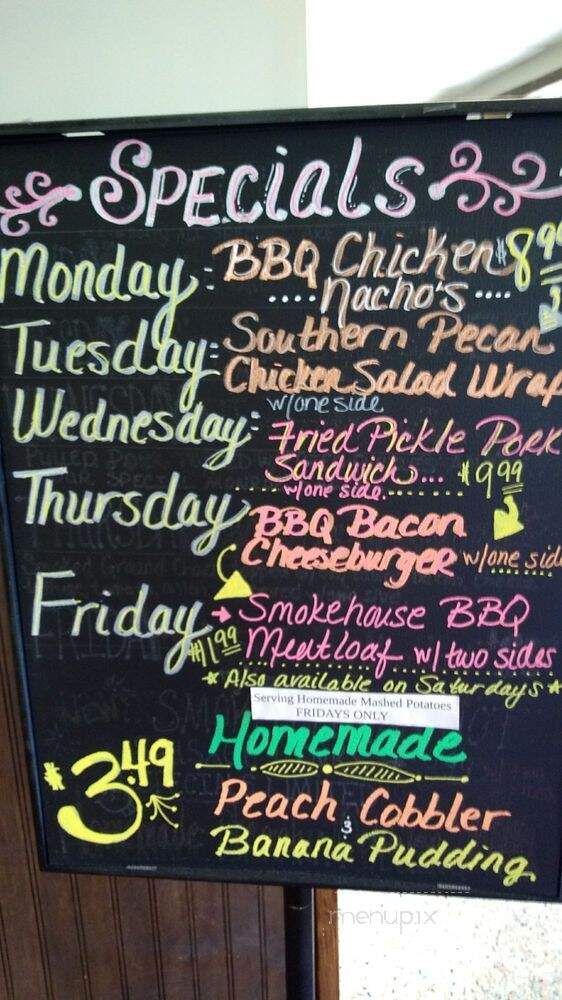 Specials
Monday: BBQ Chicken $8.99
.... Nacho's ....
Tuesday: Southern Pecan
Chicken Salad Wrap
w/one side
Wednesday: Fried Pickle Pork
Sandwich... $9.99
w/one side
Thursday BBQ Bacon
Cheeseburger w/one side
Friday → Smokehouse BBQ
$11.99 Meatloaf w/ two sides
* Also available on Saturdays *
Serving Homemade Mashed Potatoes
FRIDAYS ONLY
Homemade
$3.49
Peach Cobbler
&
Banana Pudding
menupix